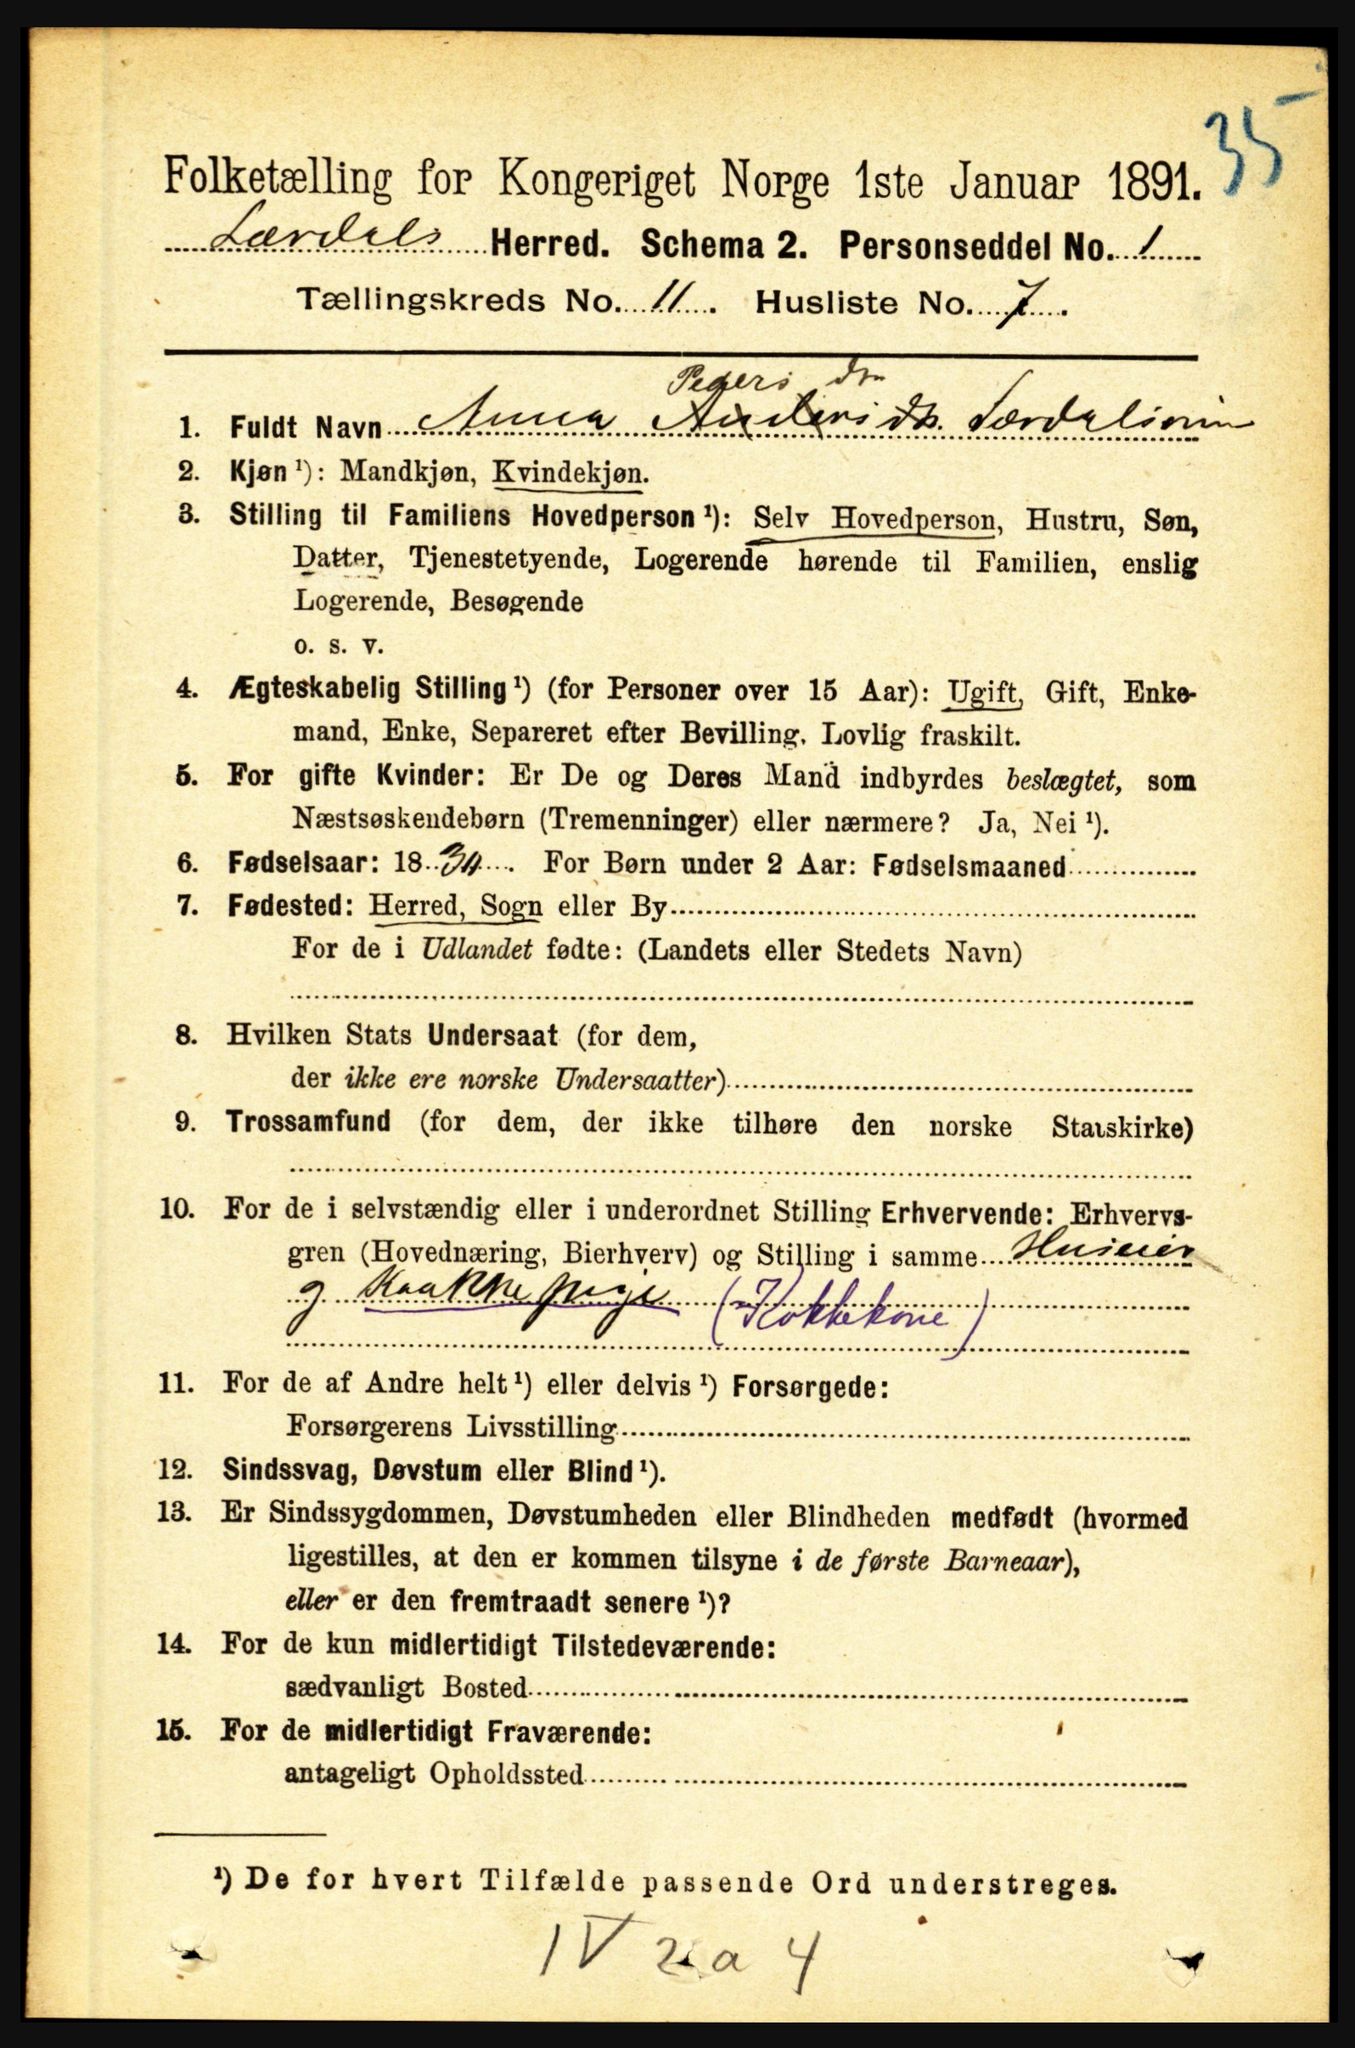 35
Folketælling for Kongeriget Norge 1ste Januar 1891.
Lærdals Herred. Schema 2. Personseddel No. 1
Tællingskreds No. 11. Husliste No. 7.
Peders dtr
1. Fuldt Navn Anna Anders dtr. Lærdalsøren
2. Kjøn ¹): Mandkjøn, Kvindekjøn.
3. Stilling til Familiens Hovedperson ¹): Selv Hovedperson, Hustru, Søn,
Datter, Tjenestetyende, Logerende hørende til Familien, enslig
Logerende, Besøgende
o. s. v.
4. Ægteskabelig Stilling ¹) (for Personer over 15 Aar): Ugift, Gift, Enke-
mand, Enke, Separeret efter Bevilling. Lovlig fraskilt.
5. For gifte Kvinder: Er De og Deres Mand indbyrdes beslægtet, som
Næstsøskendebørn (Tremenninger) eller nærmere? Ja, Nei ¹).
6. Fødselsaar: 1834. For Børn under 2 Aar: Fødselsmaaned
7. Fødested: Herred, Sogn eller By
For de i Udlandet fødte: (Landets eller Stedets Navn)
8. Hvilken Stats Undersaat (for dem,
der ikke ere norske Undersaatter)
9. Trossamfund (for dem, der ikke tilhøre den norske Statskirke)
10. For de i selvstændig eller i underordnet Stilling Erhvervende: Erhvervs-
gren (Hovednæring, Bierhverv) og Stilling i samme Huseier
og Kaakkepige (Kokkekone)
11. For de af Andre helt ¹) eller delvis ¹) Forsørgede:
Forsørgerens Livsstilling
12. Sindssvag, Døvstum eller Blind ¹).
13. Er Sindssygdommen, Døvstumheden eller Blindheden medfødt (hvormed
ligestilles, at den er kommen tilsyne i de første Barneaar),
eller er den fremtraadt senere ¹)?
14. For de kun midlertidigt Tilstedeværende:
sædvanligt Bosted
15. For de midlertidigt Fraværende:
antageligt Opholdssted
¹) De for hvert Tilfælde passende Ord understreges.
IV 2 a 4